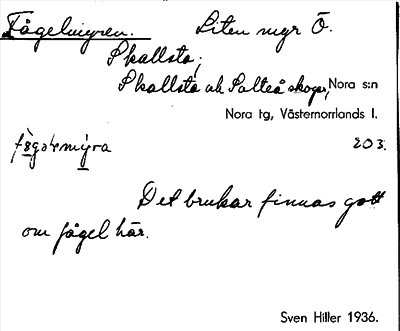 Fågelmyren. Liten myr Ö.
Skallsta;
Skallsta ah Salteå skogar, Nora s:n
Nora tg, Västernorrlands l.
203.
Det brukar finnas gott
om fågel här.
Sven Hiller 1936.